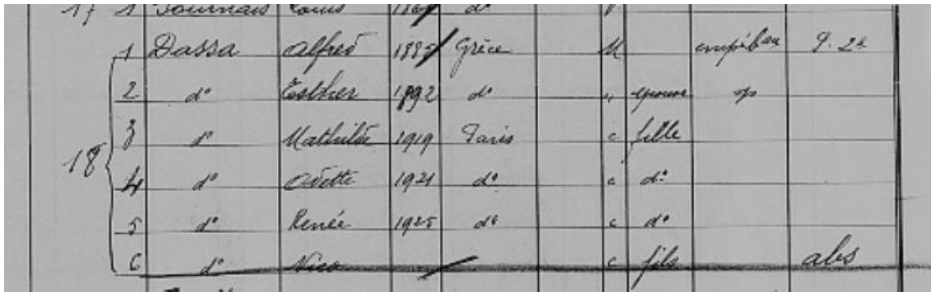 17 1 Tournais Louis d°
1 Dassa Alfred 1885 Grèce M empé bau P. 2e
2 d° Esther 1892 d° " épouse sp
3 d° Mathilde 1919 Paris c fille
18 4 d° Odette 1921 d° c d°
5 d° Renée 1925 d° c d°
6 d° Nico c fils abs